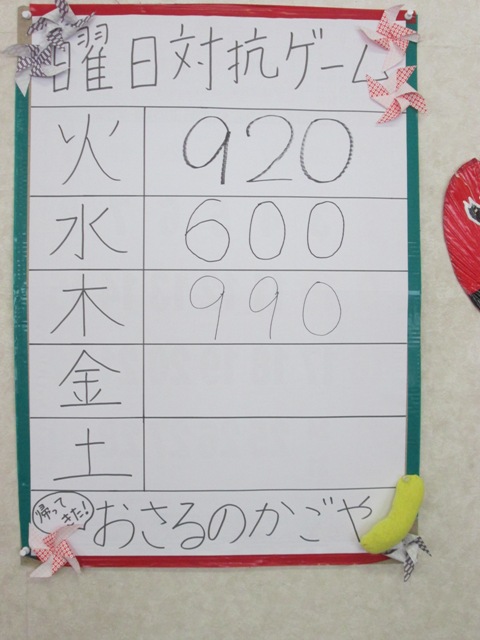 曜日対抗ゲーム
火 920
水 600
木 990
金
土
帰ってきた！
おさるのかごや